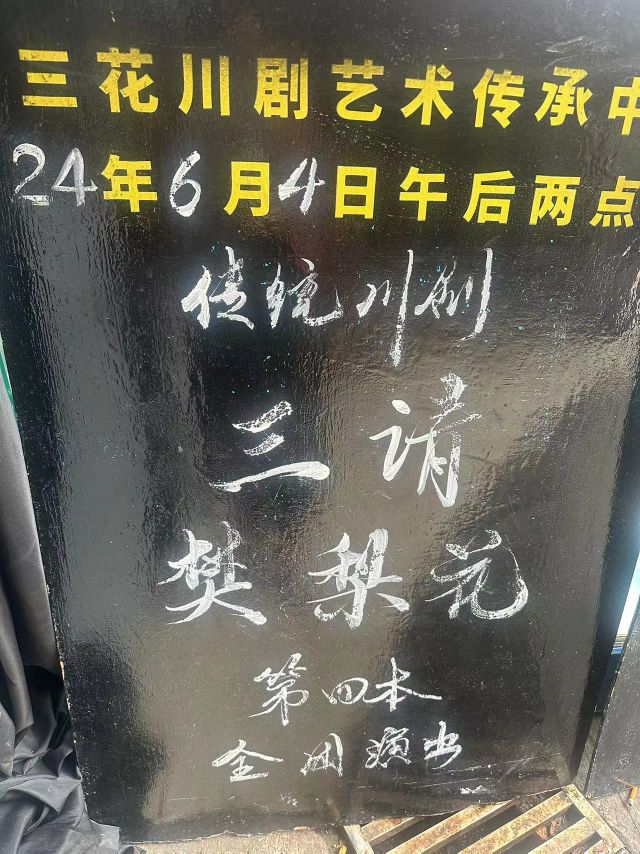 三花川剧艺术传承中
24年6月4日午后两点
传统川剧
三请
樊梨花
第四本
全团演出